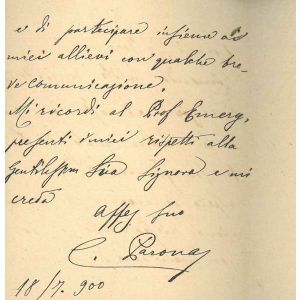 e di partecipare insieme ai
miei allievi con qualche bre-
ve comunicazione.
Mi ricordi al Prof Emery,
presenti i miei rispetti alla
gentilissma Sua Signora e mi
creda
Affez suo
C. Parona
18/7. 900